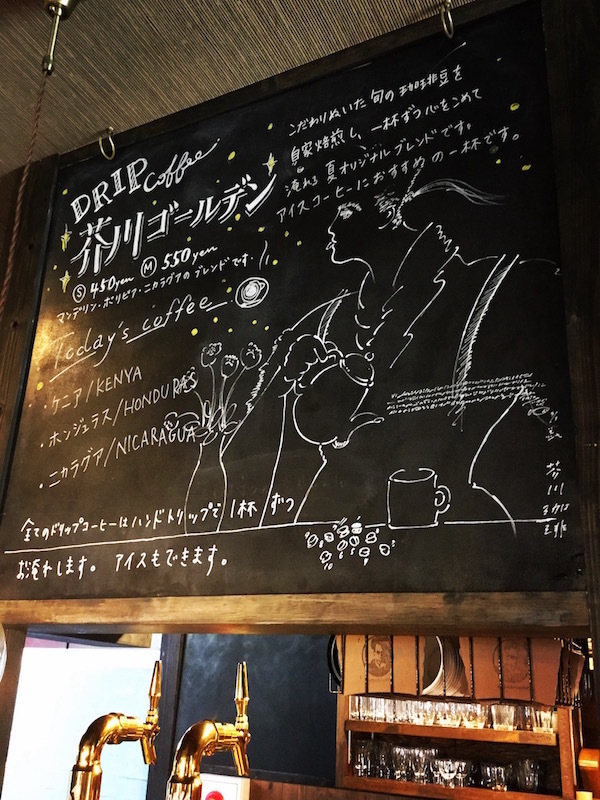 こだわりぬいた旬の珈琲豆を
自家焙煎し、一杯ずつ心をこめて
淹れる夏オリジナルブレンドです。
アイスコーヒーにおすすめの一杯です。
DRIP coffee
芥川ゴールデン
Ⓢ 450yen Ⓜ 550yen
マンデリン・ボリビア・ニカラグアのブレンドです。
Today's coffee
・ケニア/KENYA
・ホンジュラス/HONDURAS
・ニカラグア/NICARAGUA
全てのドリップコーヒーはハンドドリップで1杯ずつ
お淹れします。アイスもできます。
芥川
珈琲